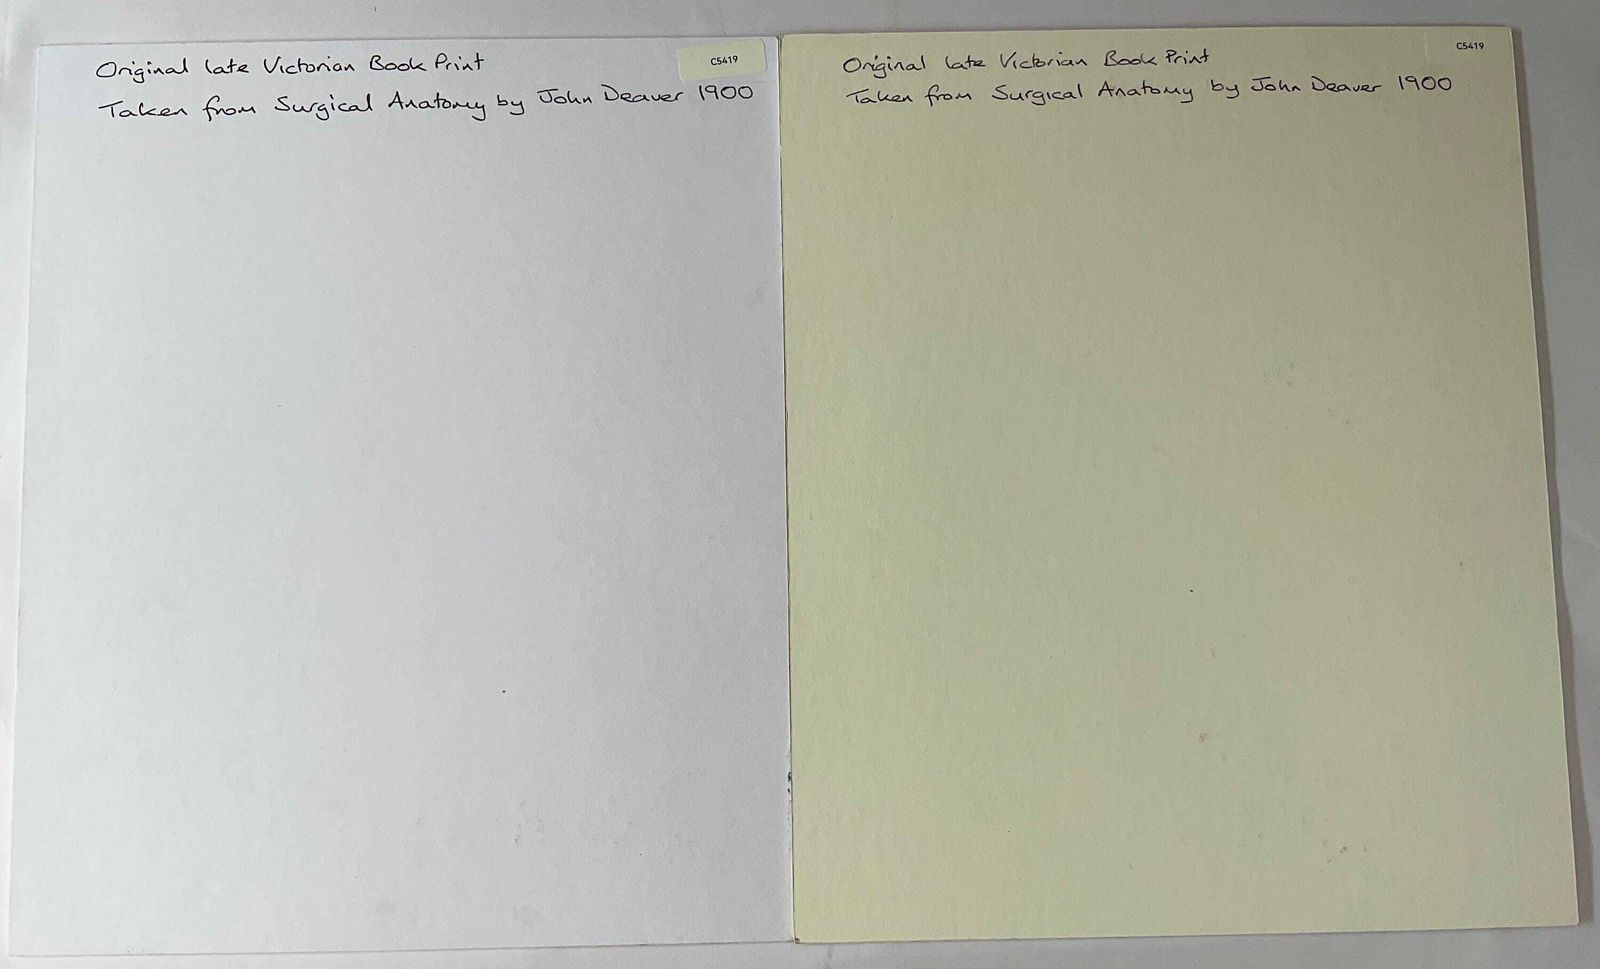 Original late Victorian Book Print
C5419
Taken from Surgical Anatomy by John Deaver 1900
Original late Victorian Book Print
C5419
Taken from Surgical Anatomy by John Deaver 1900